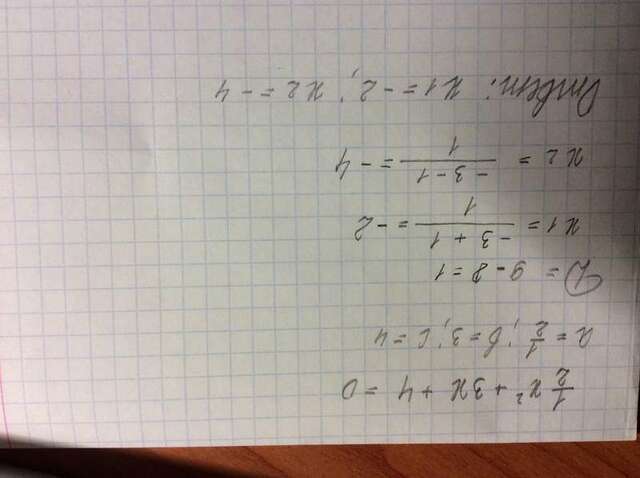 1/2 x² + 3x + 4 = 0
a = 1/2; b = 3; c = 4
D = 9 - 8 = 1
x1 = (-3 + 1)/1 = -2
x2 = (-3 - 1)/1 = -4
Ответ: x1 = -2; x2 = -4